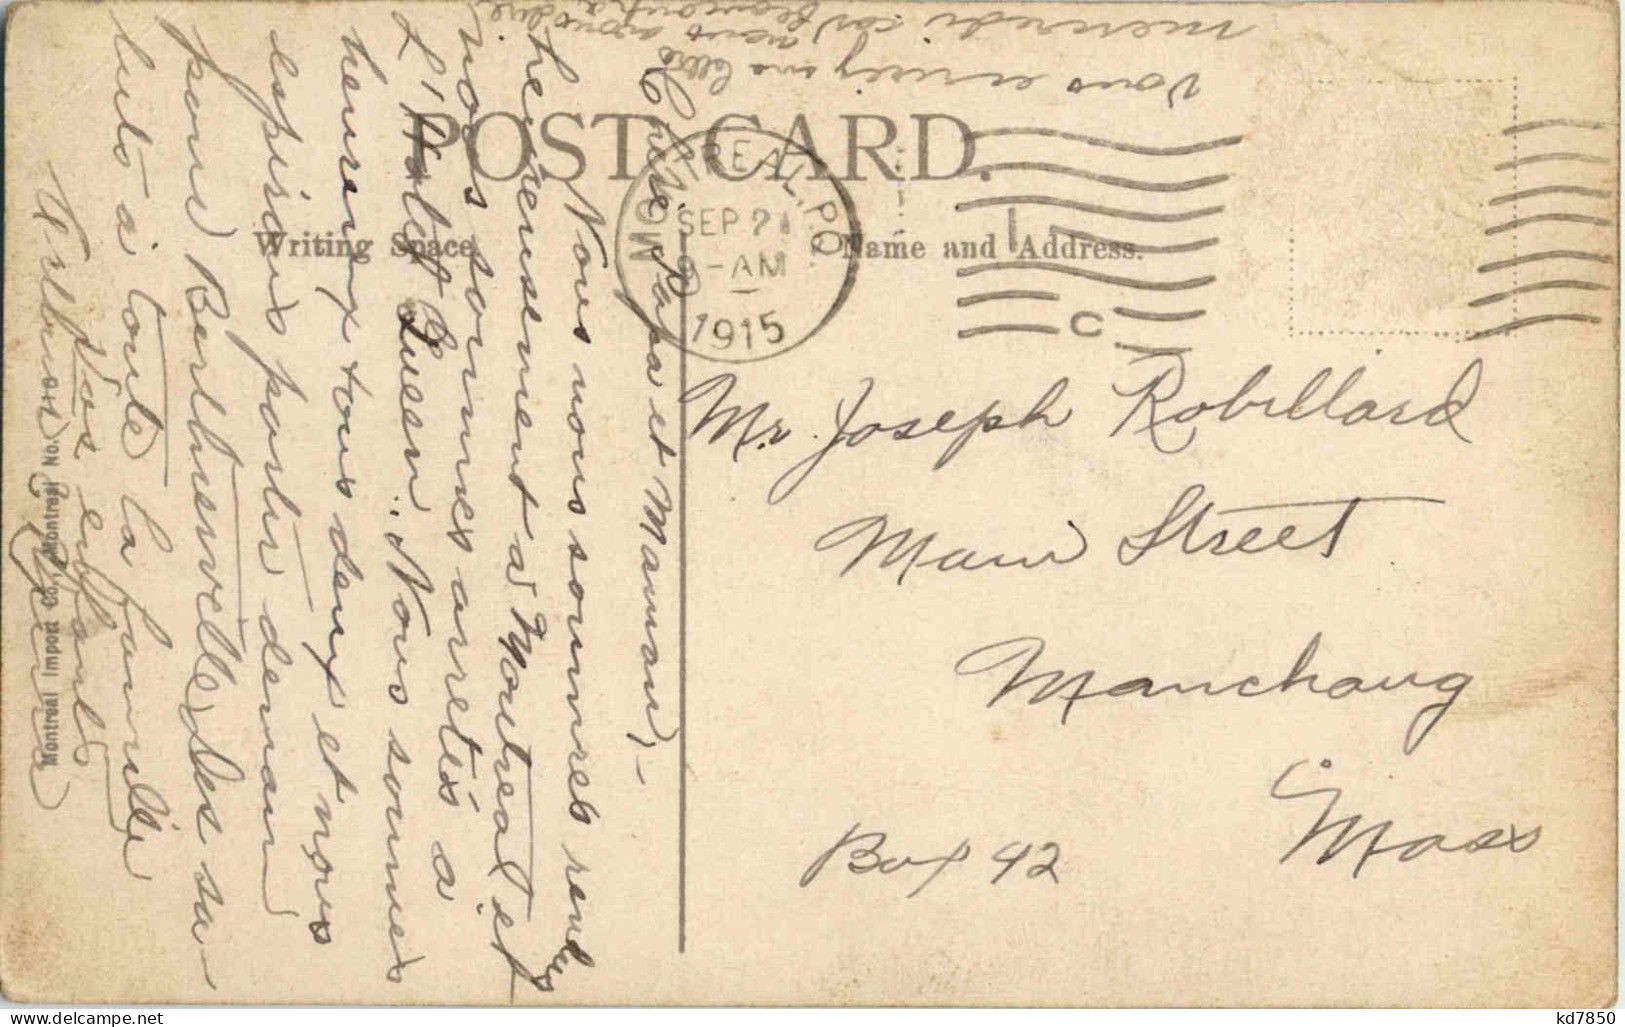 POST CARD.
Writing Space
Name and Address.
MONTREAL, P.Q.
SEP 21
9-AM
1915
C
Mr. Joseph Robillard
Main Street
Manchaug
Mass
Box 42
Chère Papa et Maman,-
Nous nous sommes rendus
heureusement à Montreal et
nous sommes arretés à
L'Hotel Queen. Nous sommes
heureux tous deux et nous
espérons partir demain
pour Berthierville. Des sa-
luts à toute la famille
Vos enfants
Wilbur
vous
lettre
mercredi car
nous
Montreal Import Co., Montreal No.
kd7850